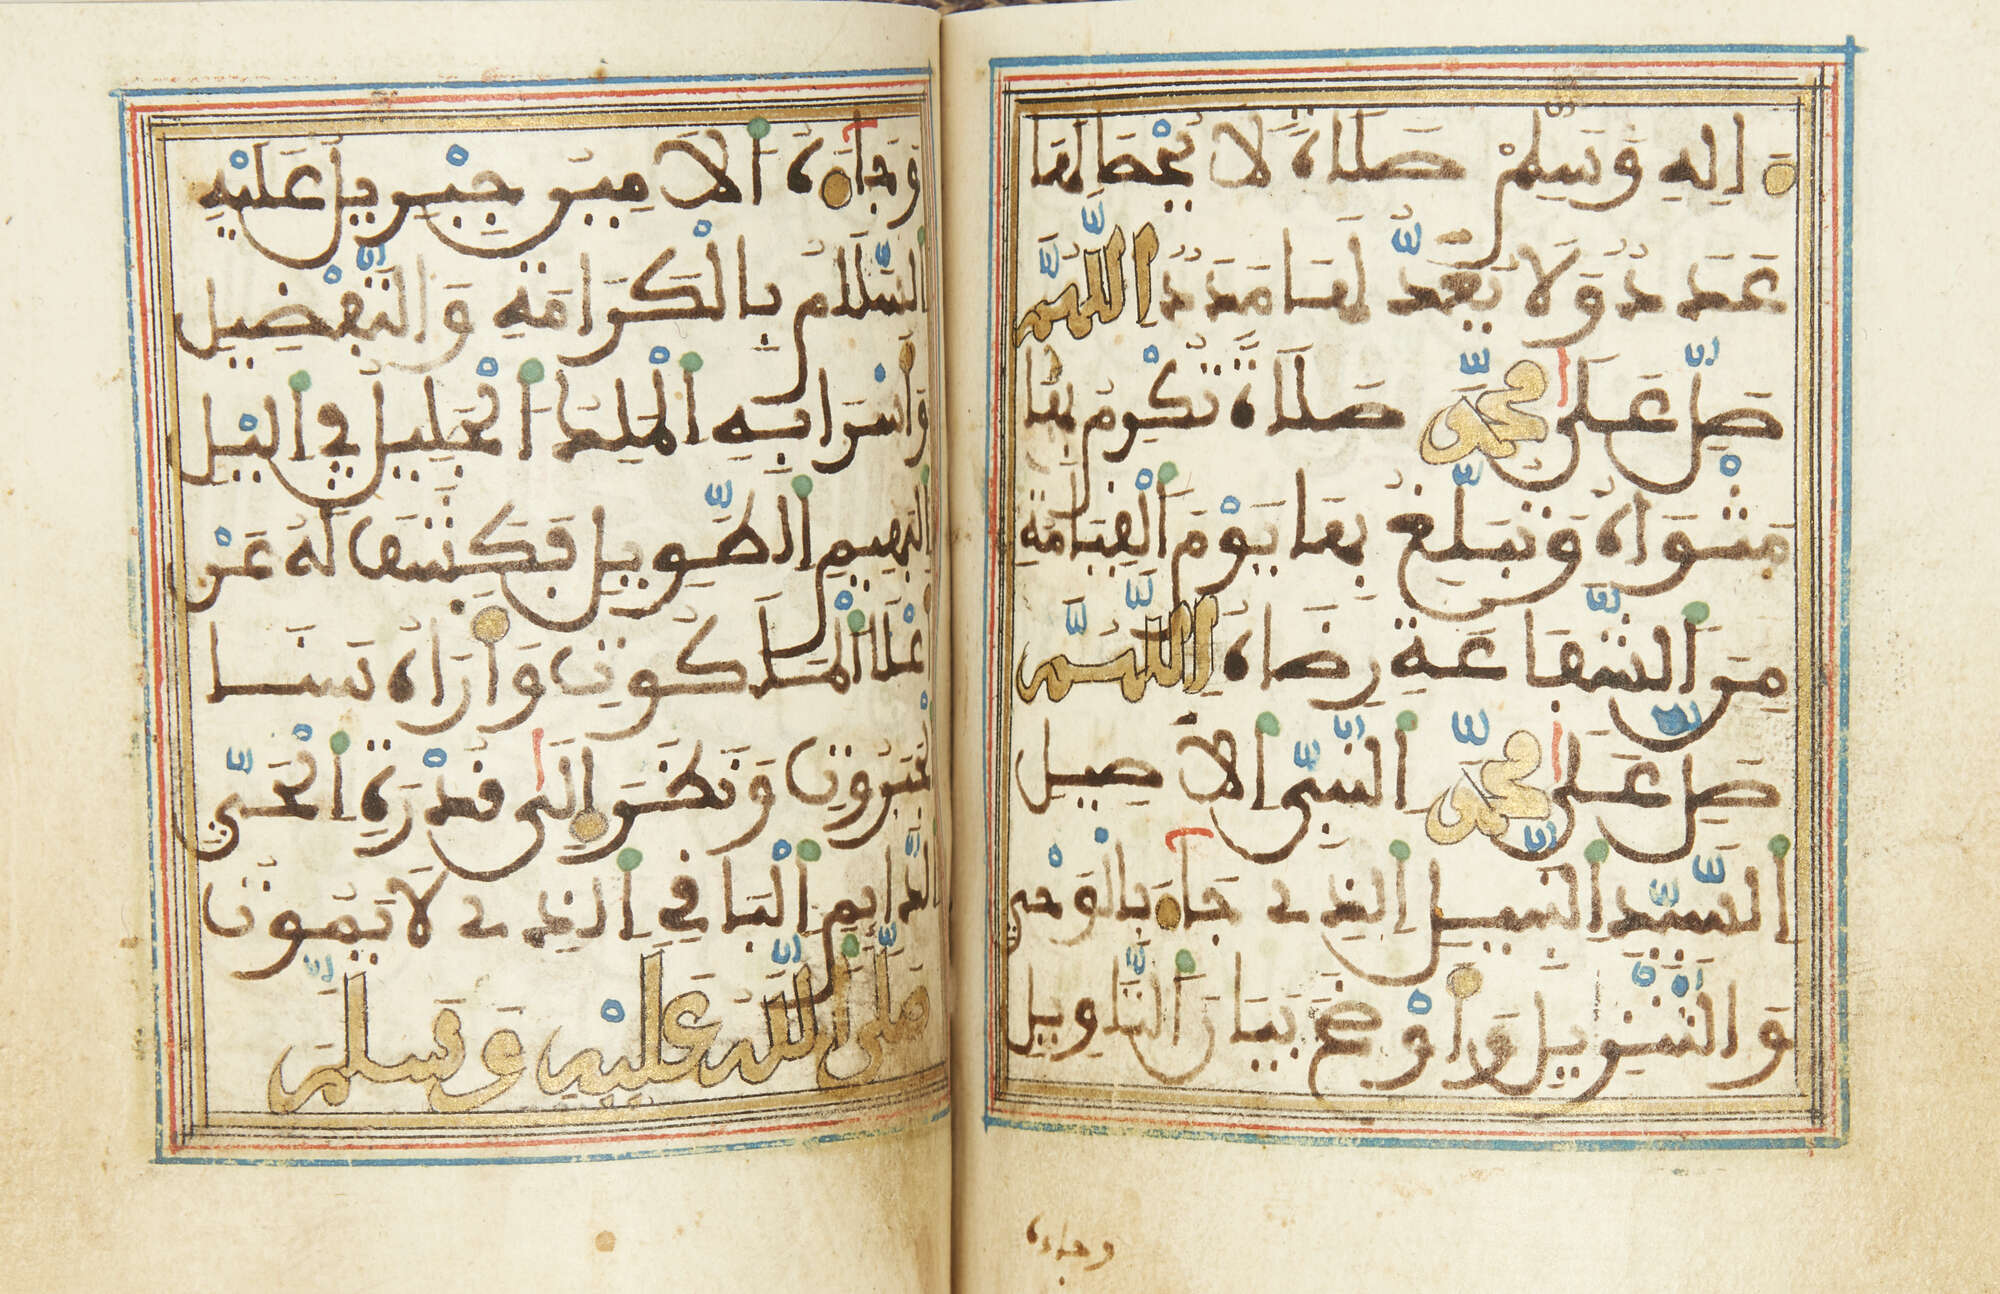 ءاله وسلم صلاة لا يحصا لها
عدد ولا يعد لها مدد اللهم
صل على محمد صلاة تكرم بها
مثواه وتبلغ بها يوم القيامة
من الشفاعة رضاه اللهم
صل على محمد النبي الاصيل
السيد النبيل الذي جاء بالوحي
والتنزيل وأوضح بيان التاويل
وجاءه
وجاءه الامين جبريل عليه
السلام بالكرامة والتفضيل
وأسرا به الملك الجليل في اليل
البهيم الطويل فكشف له عن
أعلا الملكوت وأراه سنا
الجبروت ونظر إلى قدرة الحي
الدايم الباقي الذي لا يموت
صلى الله عليه وسلم